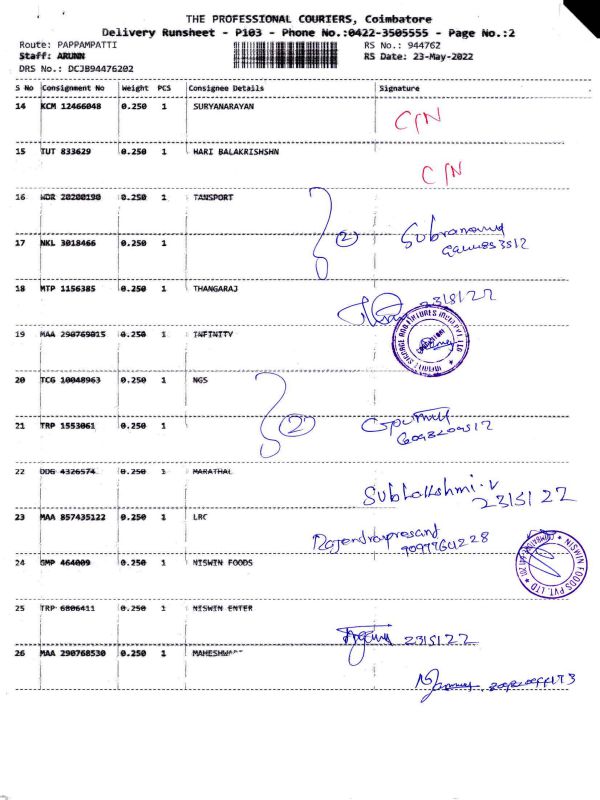 THE PROFESSIONAL COURIERS, Coimbatore
Delivery Runsheet - P103 - Phone No.:0422-3505555 - Page No.:2
Route: PAPPAMPATTI RS No.: 944762
Staff: ARUNN RS Date: 23-May-2022
DRS No.: DCJB94476202
S No Consignment No Weight PCS Consignee Details Signature
14 KCM 12466048 0.250 1 SURYANARAYAN
C/N
15 TUT 833629 0.250 1 HARI BALAKRISHSHN
C/N
16 WDR 20200190 0.250 1 TANSPORT
2
17 NKL 3018466 0.250 1
18 MTP 1156385 0.250 1 THANGARAJ
23/5/22
19 MAA 290769015 0.250 1 INFINITY
20 TCG 10048963 0.250 1 NGS
2
21 TRP 1553061 0.250 1
22 DDG 4326574 0.250 1 MARATHAL
Subhalakshmi.V
23/5/22
23 MAA 857435122 0.250 1 LRC
24 GMP 464009 0.250 1 NISWIN FOODS
NISWIN FOODS PVT. LTD
25 TRP 6806411 0.250 1 NISWIN ENTER
23/5/22
26 MAA 290768530 0.250 1